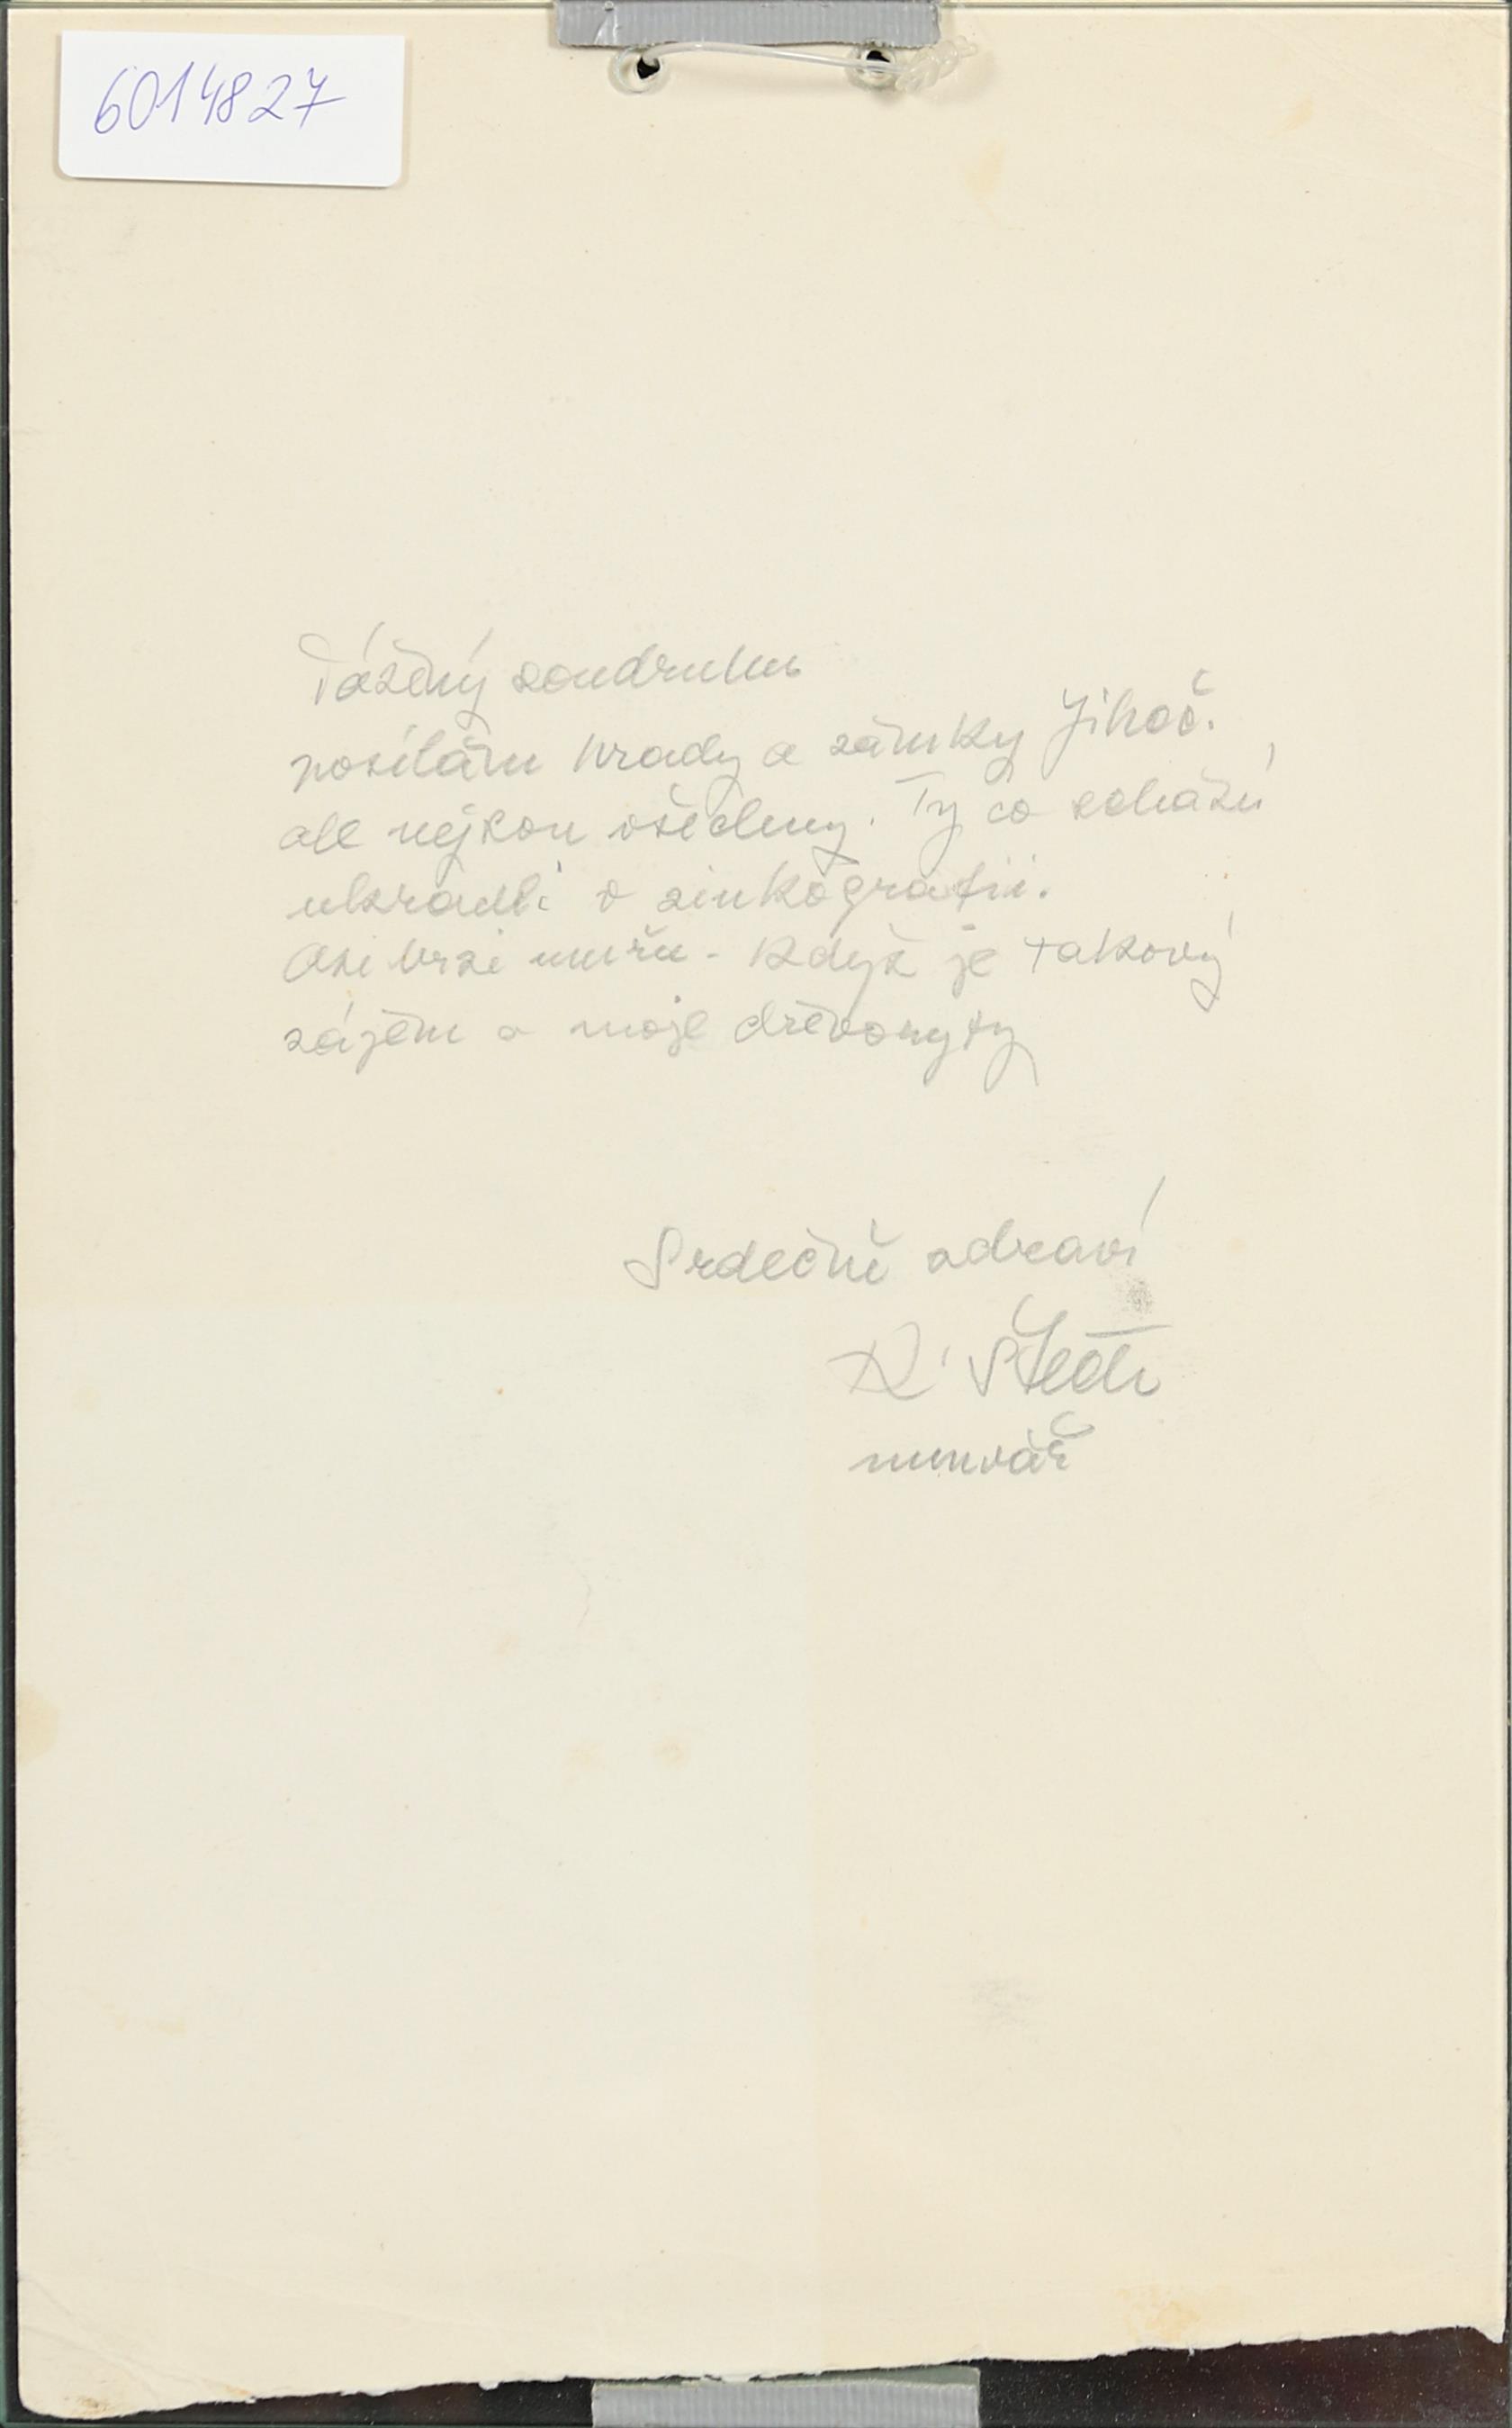 6014827
Vážený soudruhu
posílám hrady a zámky Jihoč.
ale nejsou všechny. Ty co schází
ukradli v zinkografii.
Asi brzi umřu - když je takový
zájem o moje dřevoryty
Srdečně zdraví